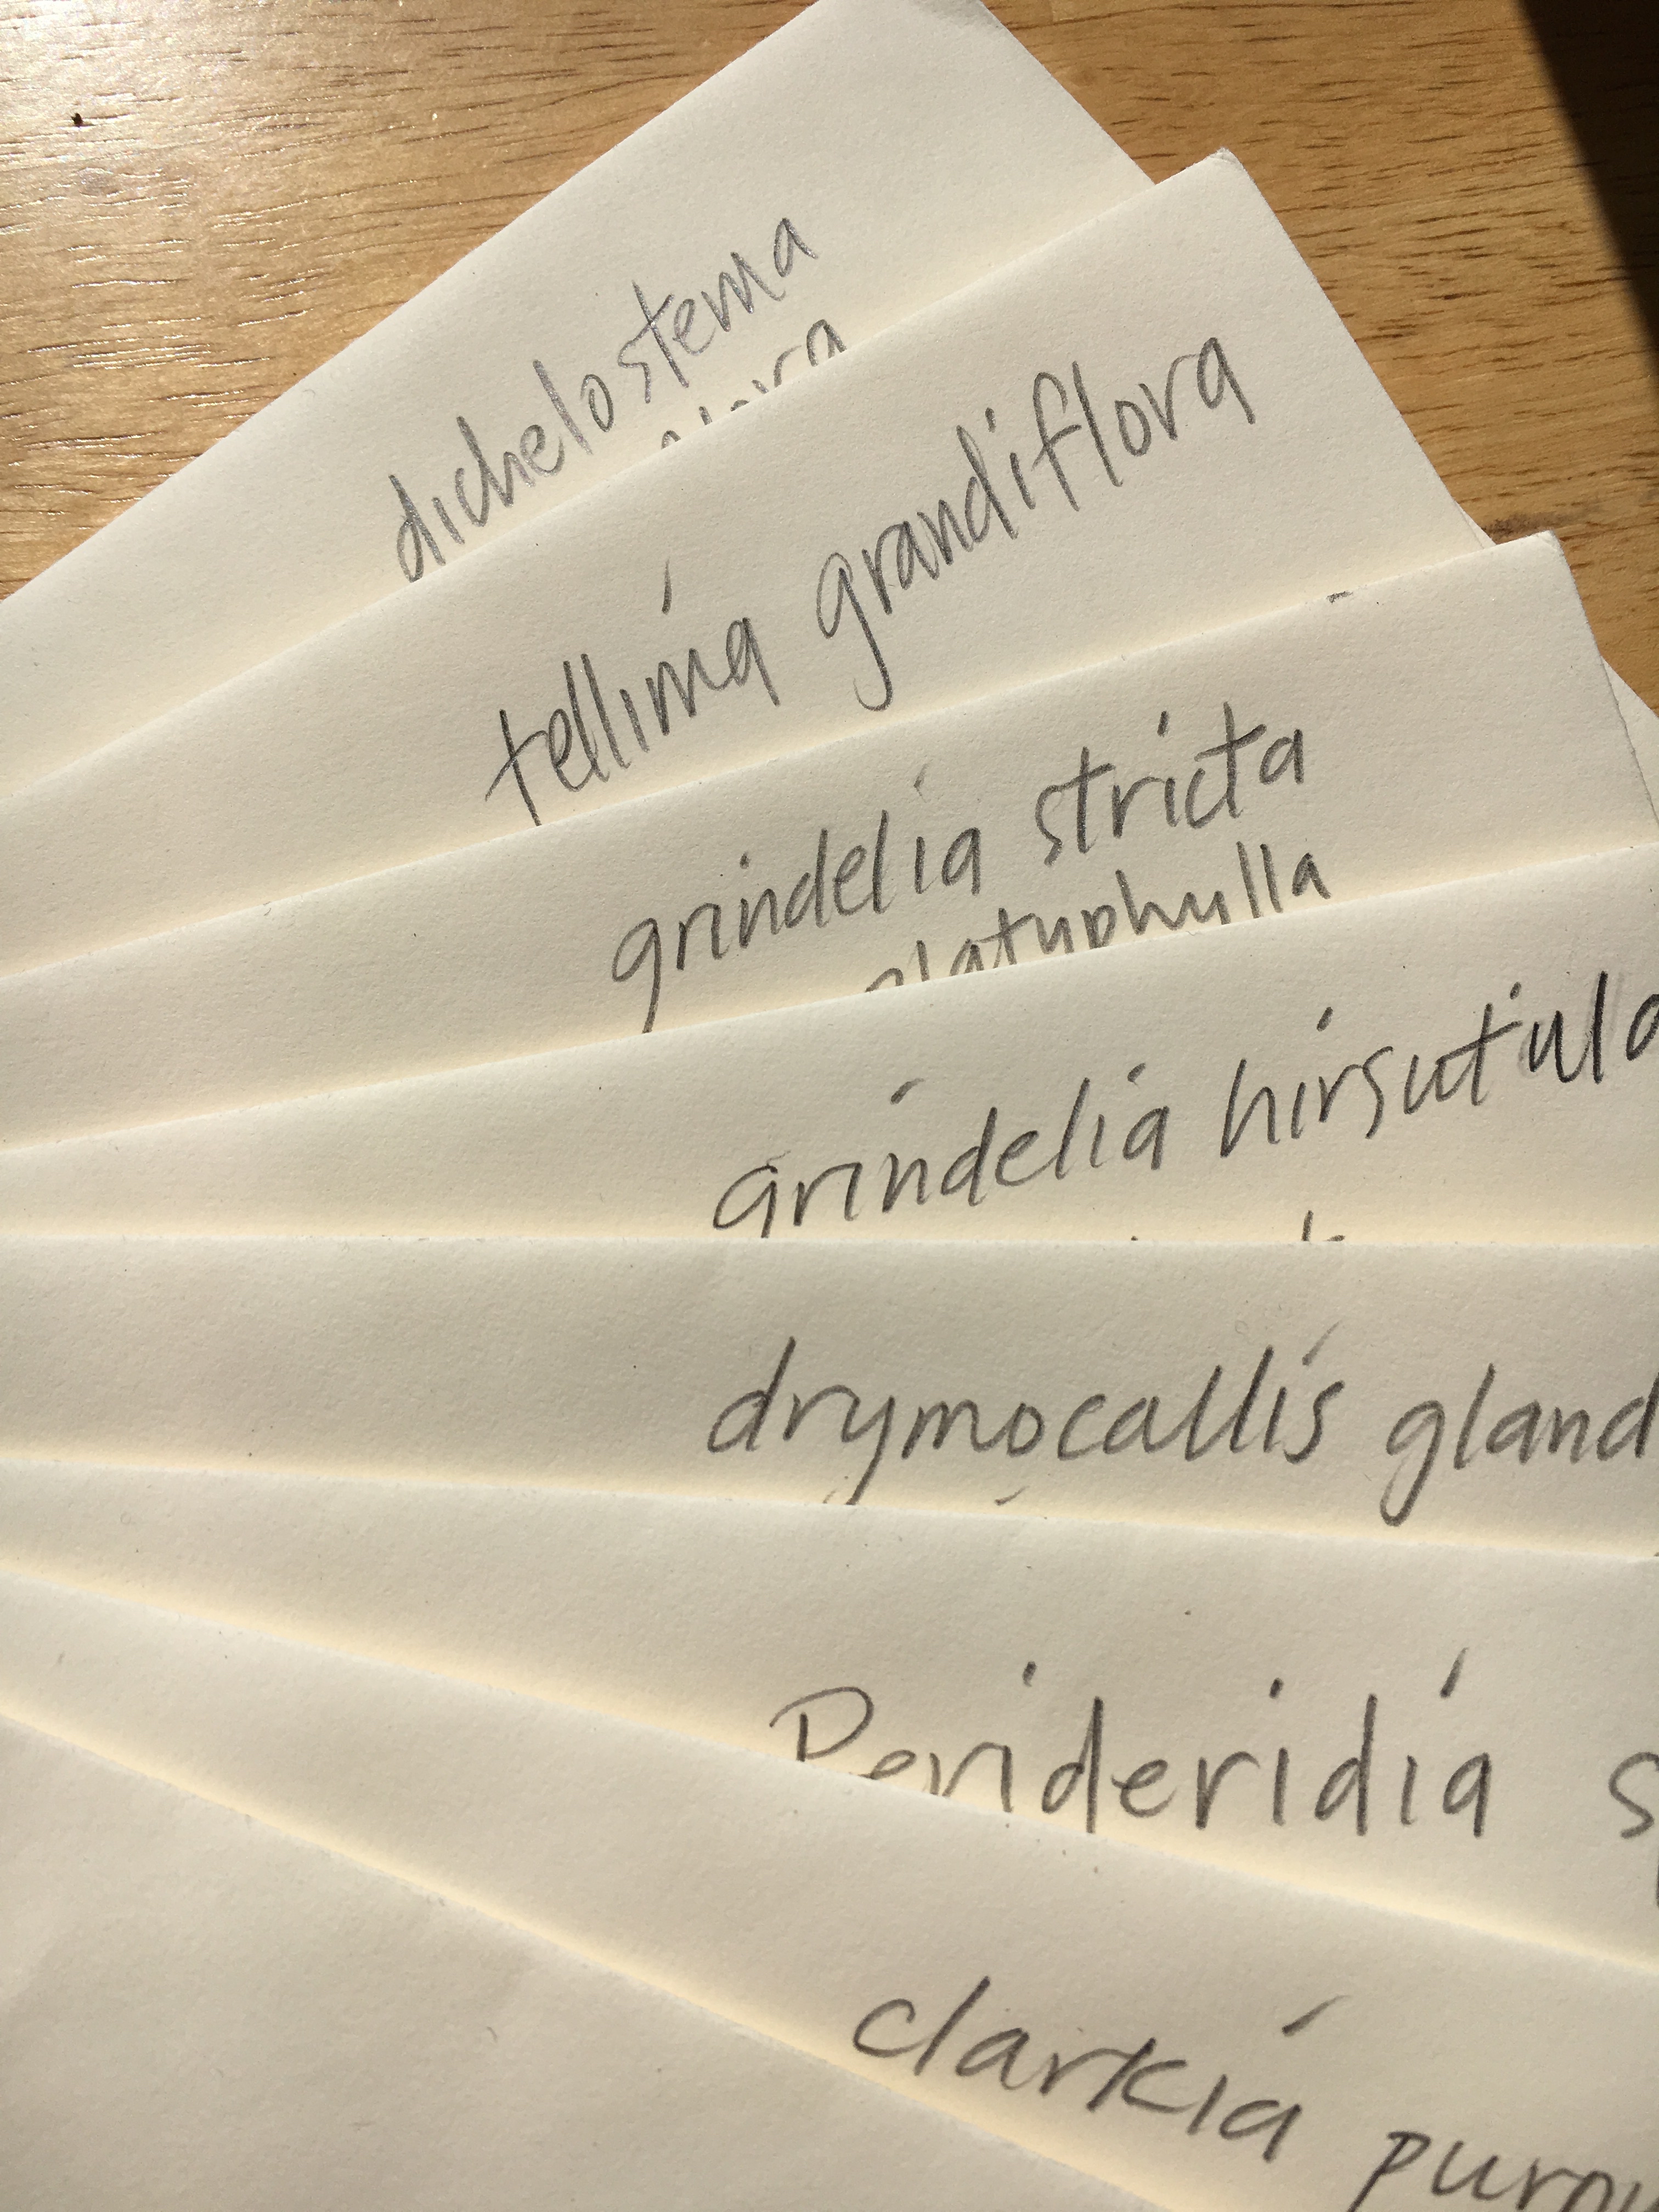 dichelostema
tellima grandiflora
grindelia stricta
platyphylla
grindelia hirsutula
drymocallis gland
Perideridia
clarkia